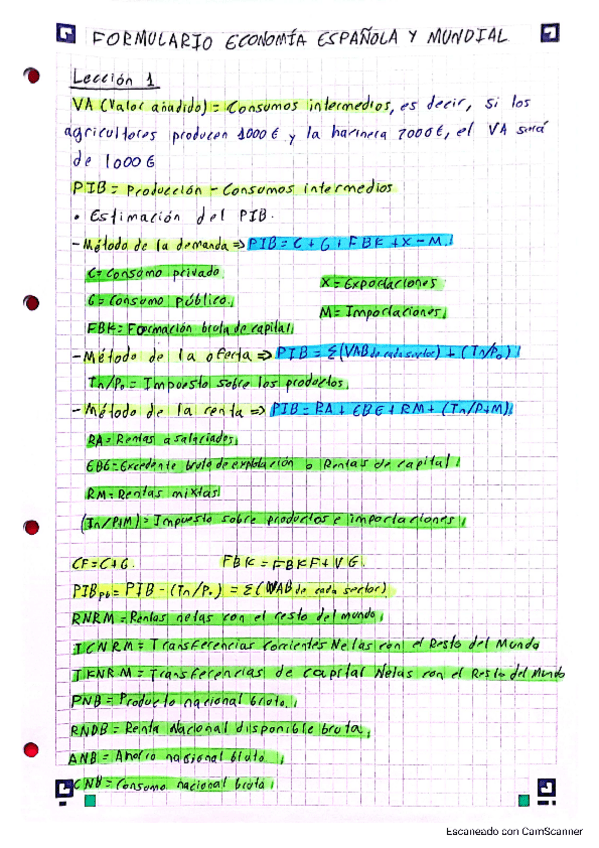 FORMULARIO ECONOMÍA ESPAÑOLA Y MUNDIAL
Lección 1
VA (Valor añadido) = Consumos intermedios, es decir, si los
agricultores producen 1000€ y la harinera 7000€, el VA será
de 1000€
PIB = Producción - Consumos intermedios
• Estimación del PIB.
- Método de la demanda => PIB = C + G + FBK + X - M.
C = Consumo privado
X = Exportaciones
G = Consumo Público.
M = Importaciones.
FBK = Formación bruta de capital.
- Método de la oferta => PIB = Σ(VAB de cada sector) + (Tn/Po)
Tn/Po = Impuesto sobre los productos.
- Método de la renta => PIB = RA + EBE + RM + (Tn/P+M).
RA = Rentas asalariados.
EBE = Excedente bruto de explotación o Rentas de capital.
RM = Rentas mixtas
(Tn/P+M) = Impuesto sobre productos e importaciones.
CF = C+G. FBK = FBKF + VG.
PIBpb = PIB - (Tn/Po) = Σ(VAB de cada sector)
RNRM = Rentas netas con el resto del mundo.
TCNRM = Transferencias corrientes Netas con el Resto del Mundo
TKNRM = Transferencias de capital Netas con el Resto del Mundo
PNB = Producto nacional bruto.
RNDB = Renta Nacional disponible bruta.
ANB = Ahorro nacional bruto.
CNB = Consumo nacional bruto.
Escaneado con CamScanner